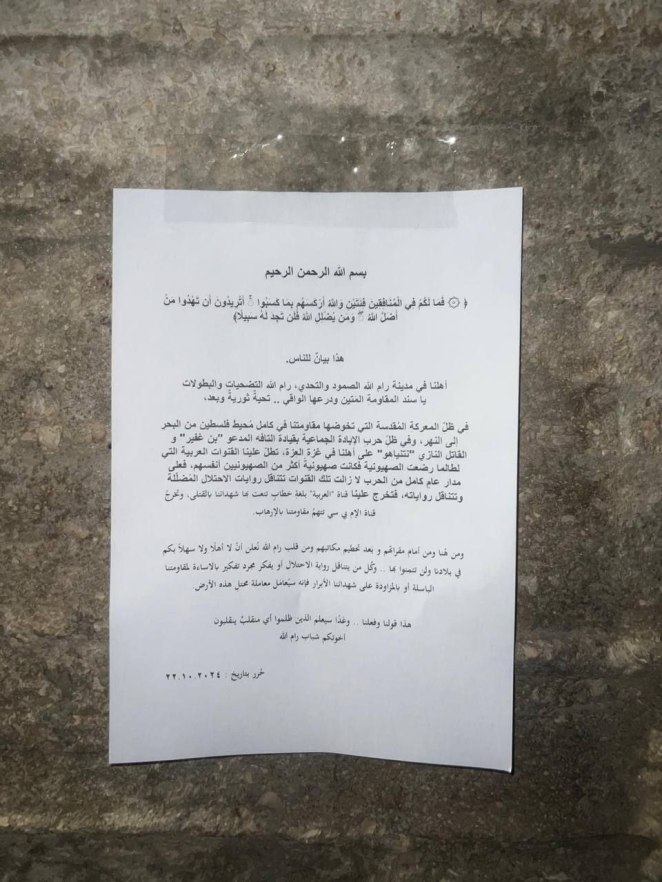 بسم الله الرحمن الرحيم
﴿ ۞ فَمَا لَكُمْ فِي الْمُنَافِقِينَ فِئَتَيْنِ وَاللَّهُ أَرْكَسَهُم بِمَا كَسَبُوا ۚ أَتُرِيدُونَ أَن تَهْدُوا مَنْ
أَضَلَّ اللَّهُ ۖ وَمَن يُضْلِلِ اللَّهُ فَلَن تَجِدَ لَهُ سَبِيلًا﴾
هذا بيانٌ للناس.
أهلنا في مدينة رام الله الصمود والتحدي، رام الله التضحيات والبطولات
يا سند المقاومة المَتين ودرعها الواقي .. تحيةً ثوريةً وبعد،
في ظل المعركة المُقدسة التي تخوضها مقاومتنا في كامل مُحيط فلسطين من البحر
إلى النهر، وفي ظل حرب الإبادة الجماعية بقيادة التافه المدعو "بن غفير" و
القاتل النازي "نتنياهو" على أهلنا في غزة العزة، تطلّ علينا القنوات العربية التي
لطالما رضعت الصهيونية فكانت صهيونيةً أكثر من الصهيونيين أنفسهم، فعلى
مدار عام كامل من الحرب لا زالت تلك القنوات تتناقل روايات الاحتلال المُضلّلة
وتتناقل رواياته، فتخرج علينا قناة "العربية" بلغة خطابٍ تنعت بها شهدائنا بالقتلى، وتخرجُ
قناة الإم بي سي لتتهمُ مقاومتنا بالإرهاب.
ومن هُنا ومن أمام مقراتهم و بعد تحطيم مكاتبهم ومن قلب رام الله نُعلن أنْ لا أهلًا ولا سهلًا بكم
في بلادنا ولن تنعموا بها .. وكُل من يتناقل رواية الاحتلال أو يفكر مجرد تفكير بالاساءة لمقاومتنا
الباسلة أو بالمزاودة على شهدائنا الأبرار فإنه سيُعامَل معاملة محتل هذه الأرض.
هذا قولنا وفعلنا .. وغدًا سيعلم الذين ظلموا أي منقلبٌ ينقلبون
أخوتكم شباب رام الله
حُرر بتاريخ : ٢٢.١٠.٢٠٢٤